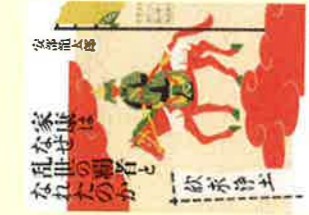 安部龍太郎
家康は
なぜ
乱世の覇者と
なれたのか
欣求浄土